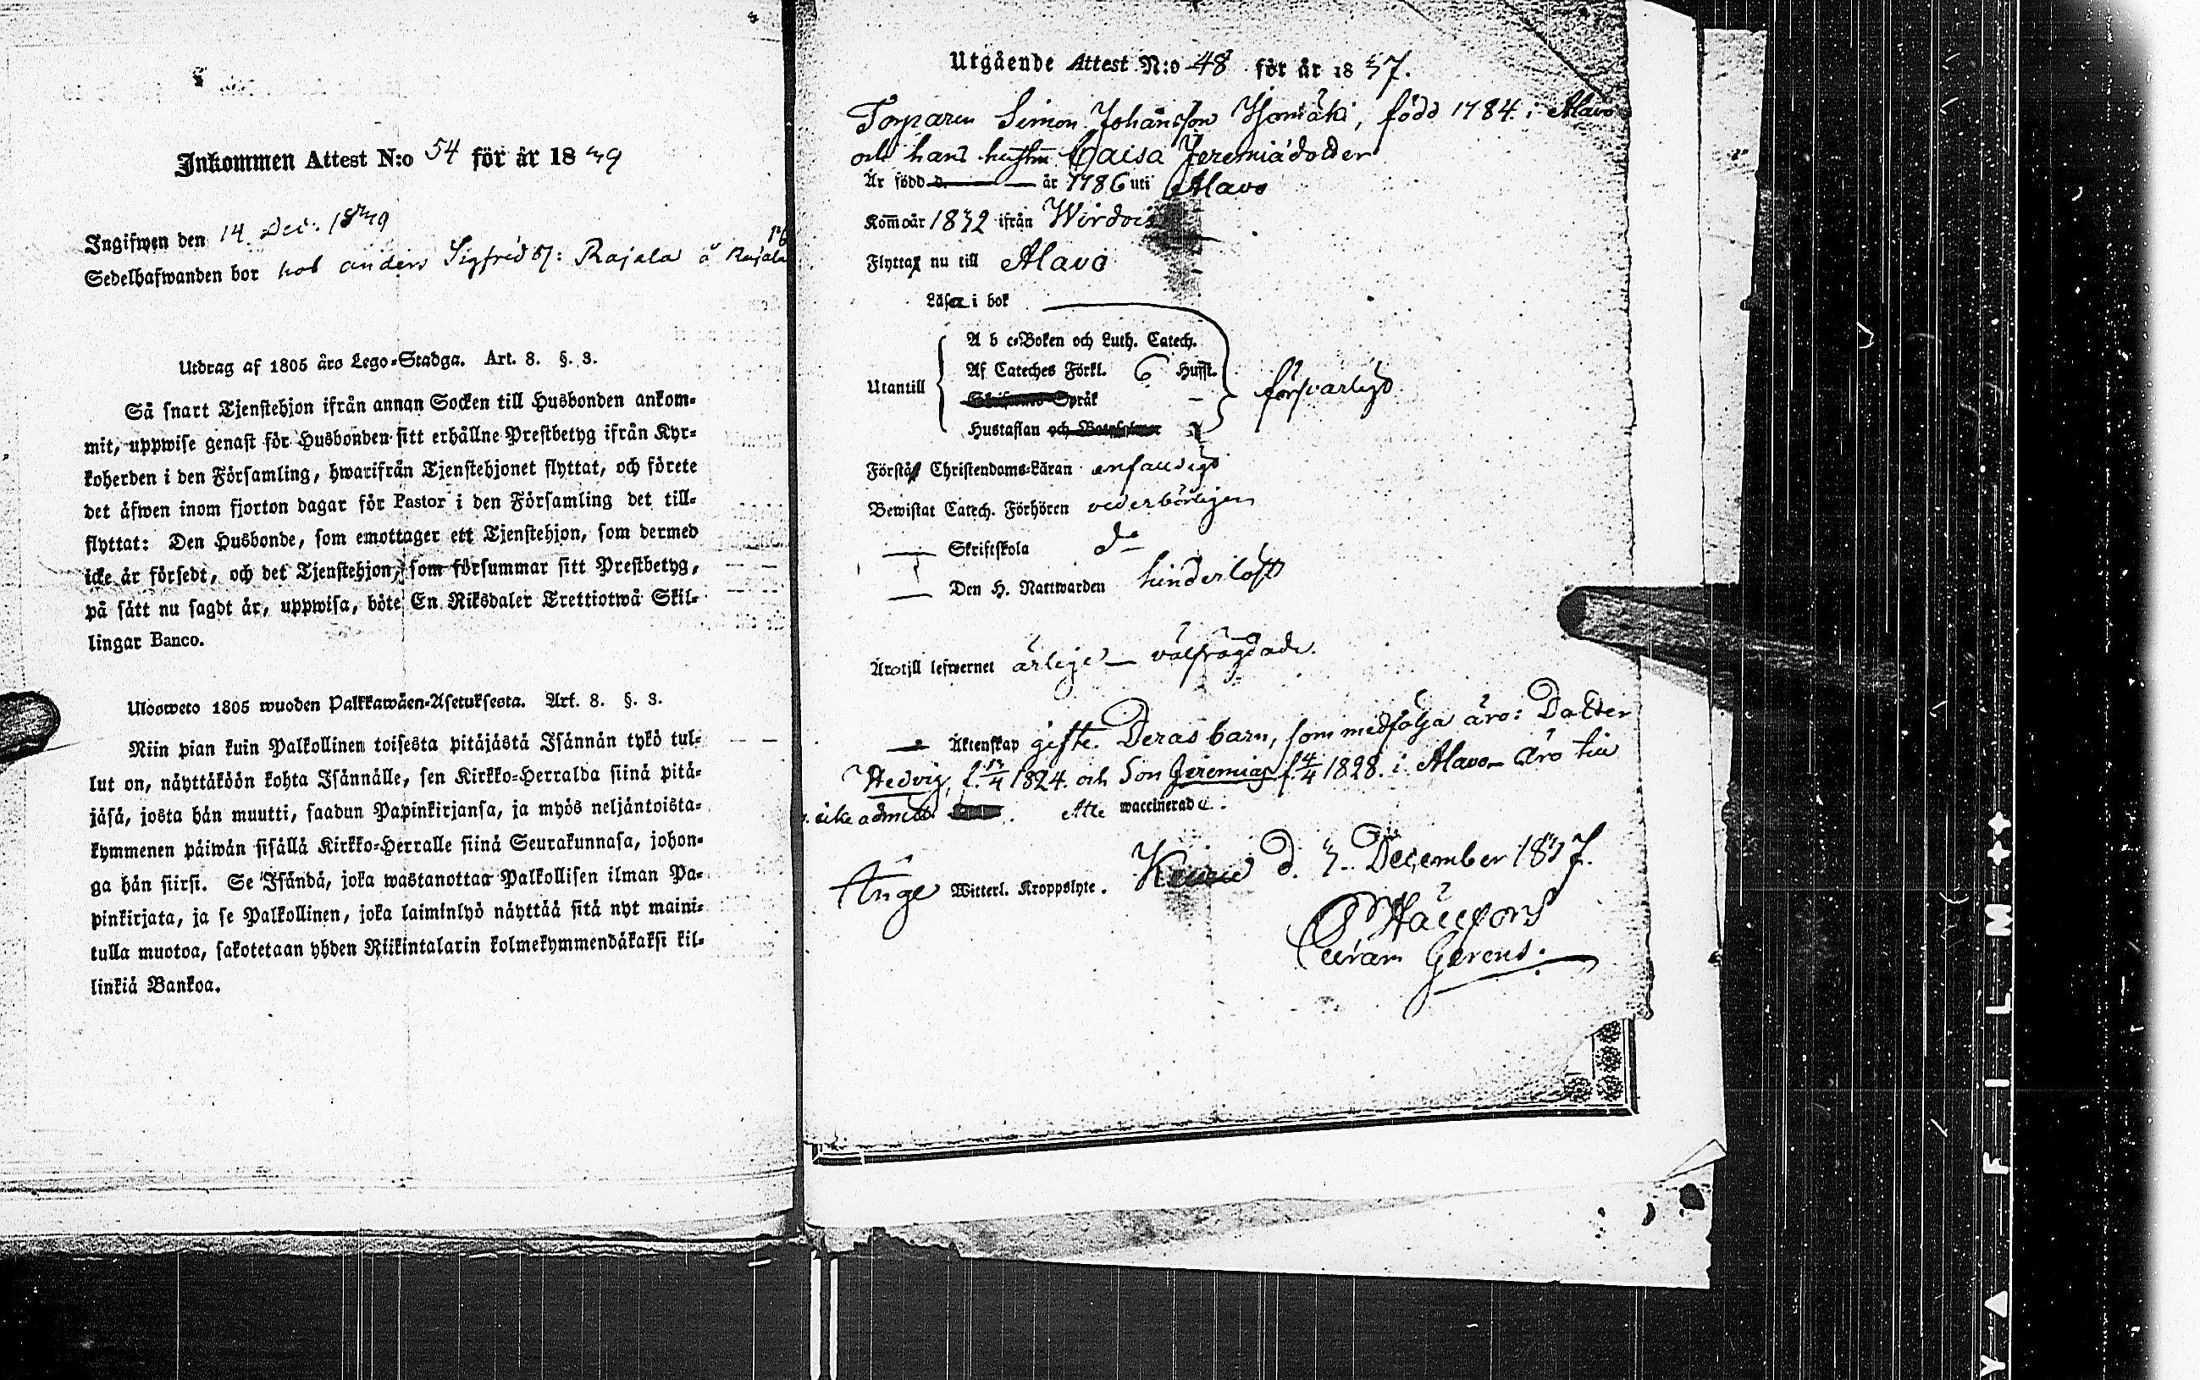 Inkommen Attest N:o 54 för år 1839
Ingifwen den 14 Dec. 1839
Sedelhafwanden bor hos anders Sigfridss: Rajala å Rajala
Utdrag af 1805 års Lego-Stadga. Art. 8. §. 3.
Så snart Tjenstehjon ifrån annan Socken till Husbonden ankom-
mit, uppwise genast för Husbonden sitt erhållne Prestbetyg ifrån Kyr-
koherden i den Församling, hwarifrån Tjenstehjonet flyttat, och förete
det äfwen inom fjorton dagar för Pastor i den Församling det till-
flyttat: Den Husbonde, som emottager ett Tjenstehjon, som dermed
icke är försedt, och det Tjenstehjon, som försummar sitt Prestbetyg,
på sätt nu sagdt är, uppwisa, böte En Riksdaler Trettiotwå Skil-
lingar Banco.
Ulosweto 1805 wuoden Palkkawäen-Asetuksesta. Art. 8. §. 3.
Niin pian kuin Palkollinen toisesta pitäjästä Isännän tykö tul-
lut on, näyttäköön kohta Isännälle, sen Kirkko-Herralda siinä pitä-
jäsä, josta hän muutti, saadun Papinkirjansa, ja myös neljäntoista-
kymmenen päiwän sisällä Kirkko-Herralle siinä Seurakunnasa, johon-
ga hän siirsi. Se Isändä, joka wastanottaa Palkollisen ilman Pa-
pinkirjata, ja se Palkollinen, joka laiminlyö näyttää sitä nyt maini-
tulla muotoa, sakotetaan yhden Riikintalarin kolmekymmendäkaksi kil-
linkiä Bankoa.
Utgående Attest N:o 48 för år 1837.
Torparen Simon Johansson, född 1784. i Alavo
och hans hustru Caisa Jeremiædotter
Är född d. år 1786 uti Alavo
Kom̄ år 1832 ifrån Wirdois
Flyttar nu till Alavo
Läsa i bok
A b c-Boken och Luth. Catech.
Af Cateches Förkl. 6 Hufst.
Utantill försvarligt
Språk
Hustaflan
Förstår Christendoms-Läran enfaldigt
Bewistat Catech. Förhören vederbörligen
Skriftskola do
Den H. Nattwarden hinderlöst
Äro till lefwernet ärlige välfrägdade.
Äktenskap gifte. Deras barn, som medfölja äro: Dotter
Hedvig, f. 1824. och Son Jeremias f. 4/4 1828. i Alavo Äro till
icke admitt. Alle waccinerade.
Änge Witterl. Kroppslyte. Keuru d. 3. December 1837.
Curam Gerens.